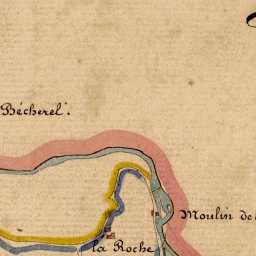 Bécherel.
Moulin de
la Roche